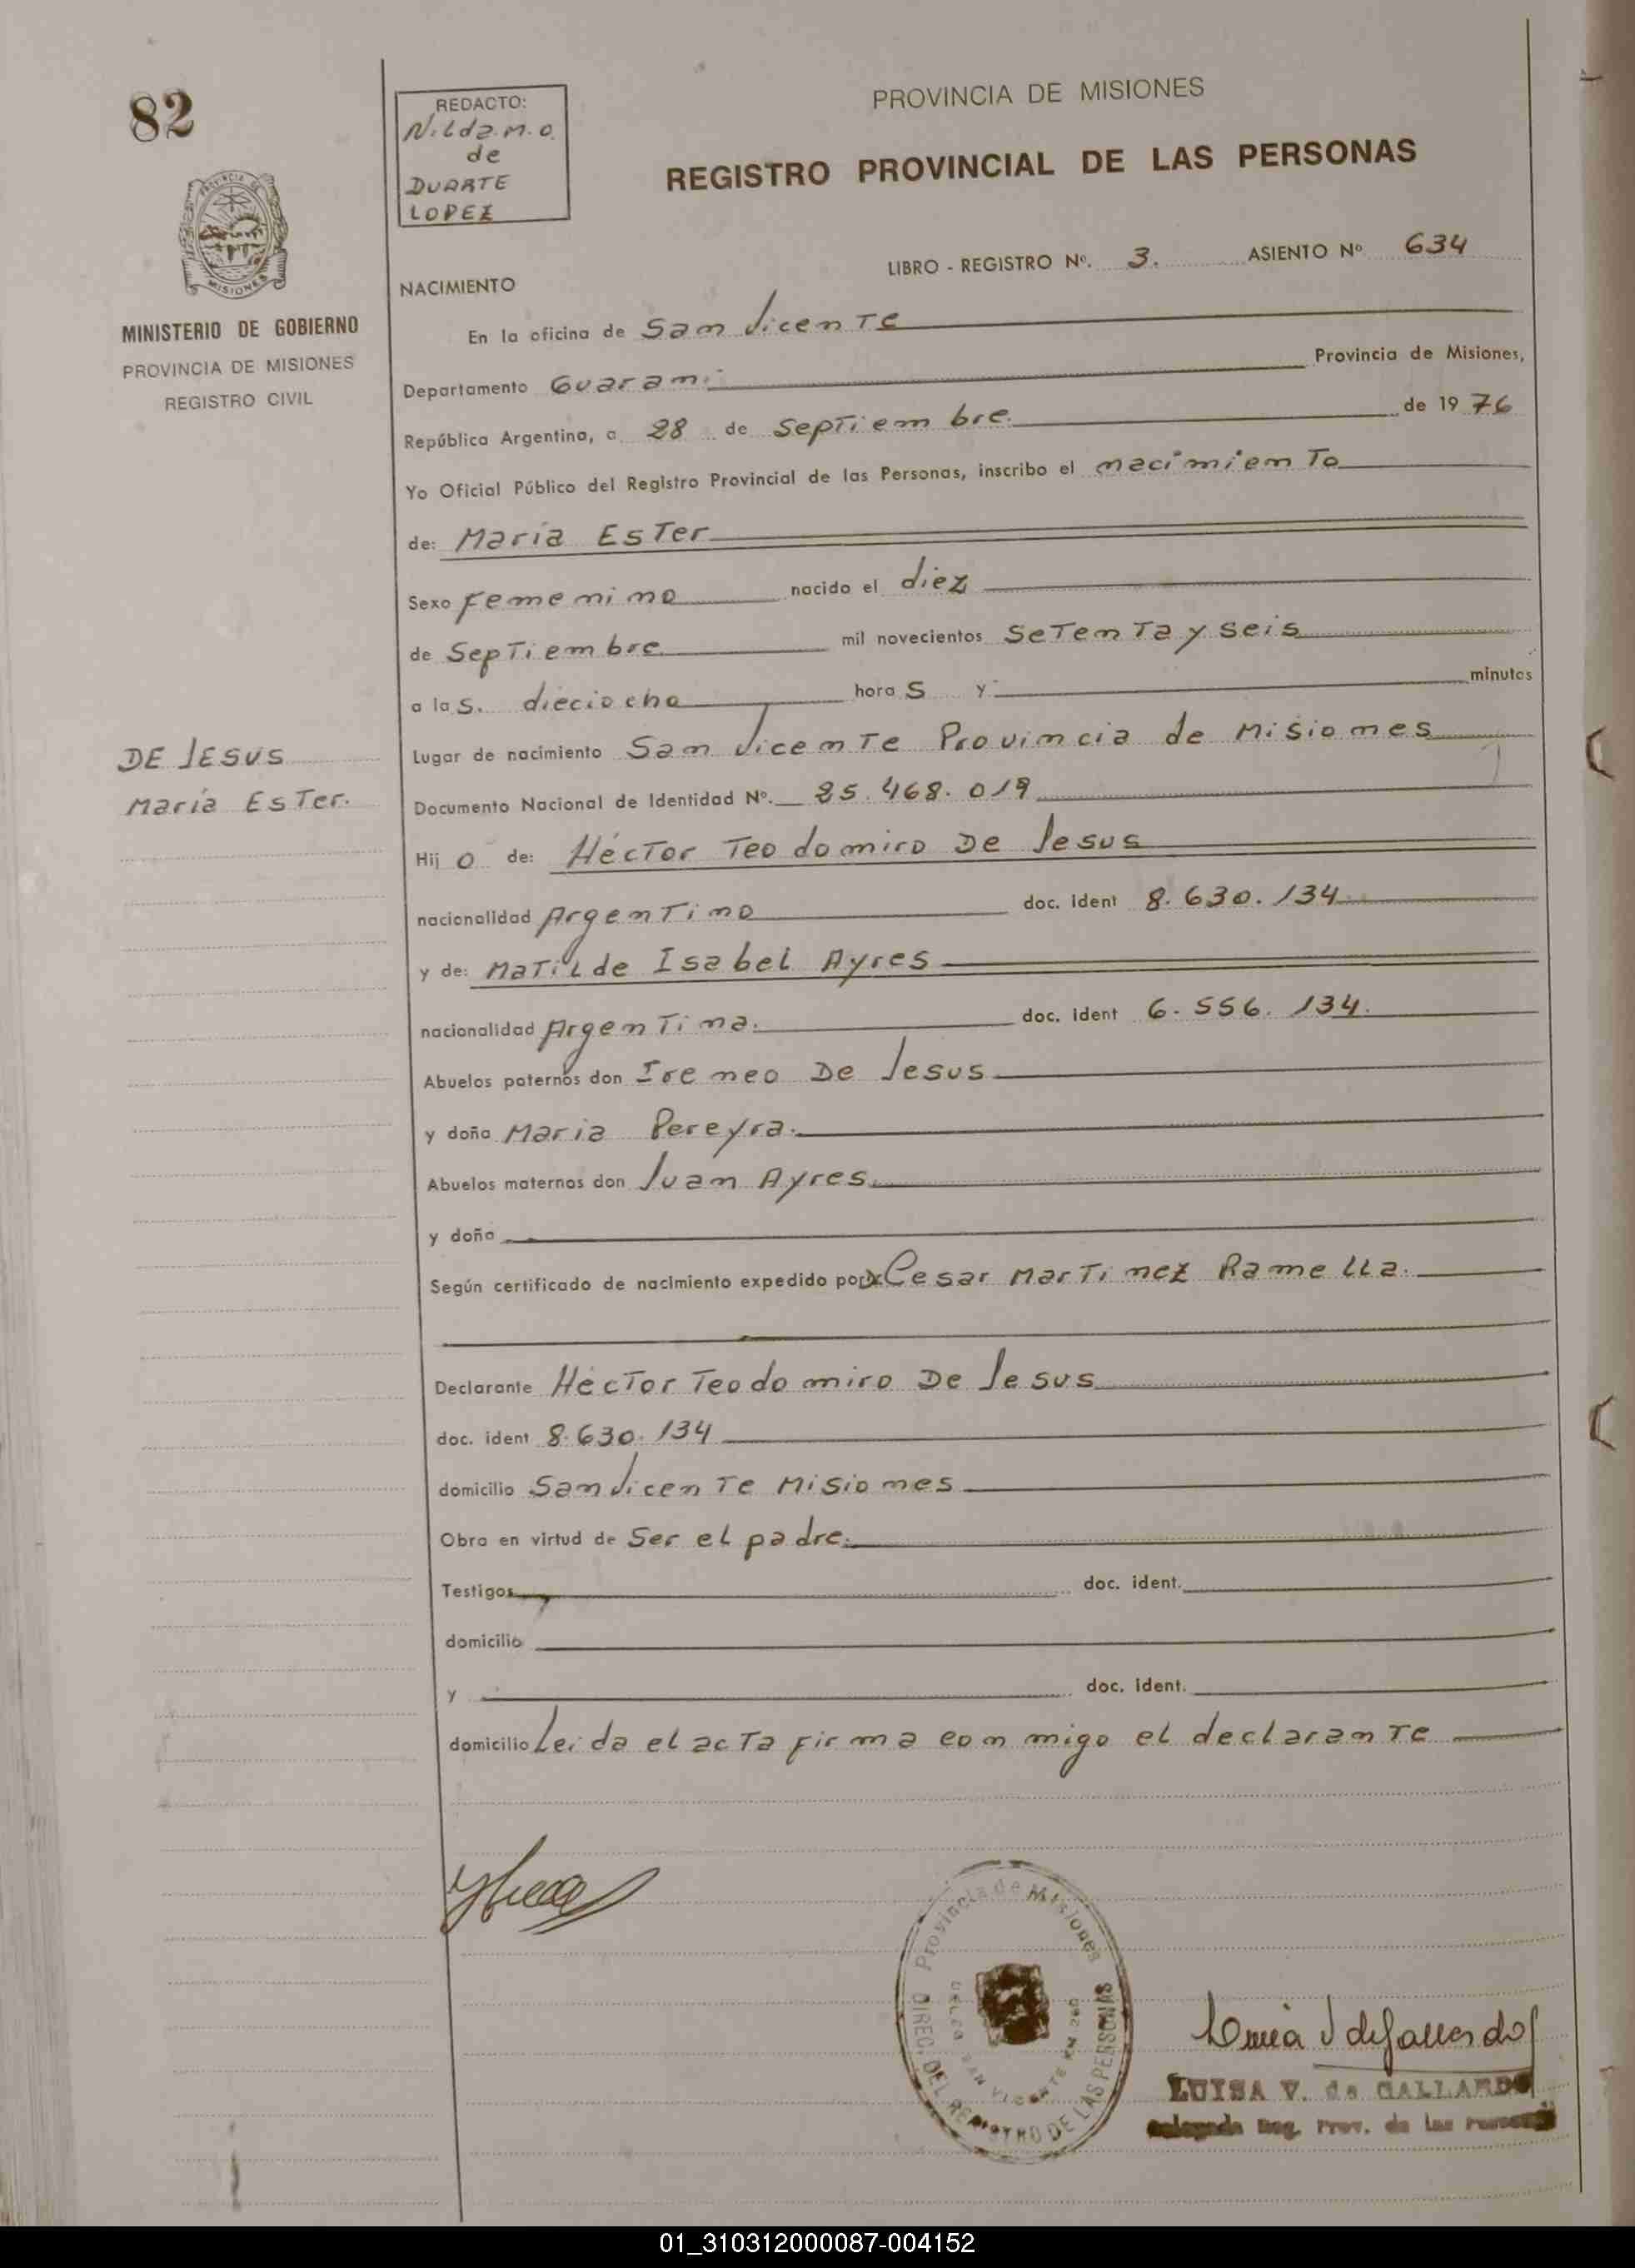 82
REDACTO:
Nilda.M.O.
de
DUARTE
LOPEZ
PROVINCIA DE MISIONES
REGISTRO PROVINCIAL DE LAS PERSONAS
LIBRO - REGISTRO Nº. 3. ASIENTO Nº 634
MISIONES
MINISTERIO DE GOBIERNO
PROVINCIA DE MISIONES
REGISTRO CIVIL
NACIMIENTO
En la oficina de San Vicente
Departamento Guarani Provincia de Misiones,
República Argentina, a 28 de Septiembre de 1976
Yo Oficial Público del Registro Provincial de las Personas, inscribo el nacimiento
de: María Ester
Sexo Femenino nacido el diez
de Septiembre mil novecientos setenta y seis
a las. dieciocho horas y minutos
Lugar de nacimiento San Vicente Provincia de Misiones
DE JESUS
María Ester.
Documento Nacional de Identidad Nº. 25.468.019
Hijo de: Héctor Teodomiro De Jesus
nacionalidad Argentino doc. ident 8.630.134
y de: Matilde Isabel Ayres
nacionalidad Argentina. doc. ident 6.556.134.
Abuelos paternos don Ireneo De Jesus
y doña Maria Pereyra.
Abuelos maternos don Juan Ayres
y doña
Según certificado de nacimiento expedido por Cesar Martinez Ramella.
Declarante Héctor Teodomiro De Jesus
doc. ident 8.630.134
domicilio San Vicente Misiones
Obra en virtud de Ser el padre.
Testigos doc. ident.
domicilio
y doc. ident.
domicilio Leida el acta firma conmigo el declarante
Provincia de Misiones
DIREC. DEL REGISTRO DE LAS PERSONAS
SAN VICENTE KM 260
LUISA V. de GALLARDO
Delegada Reg. Prov. de las Personas
01_310312000087-004152